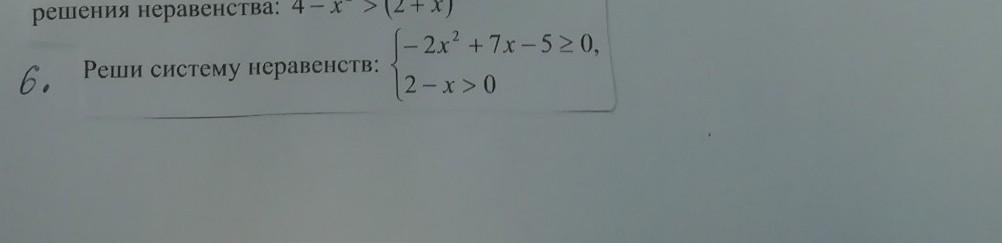 решения неравенства: 4 – x² > (2 + x)
6. Реши систему неравенств: { – 2x² + 7x – 5 ≥ 0,
2 – x > 0